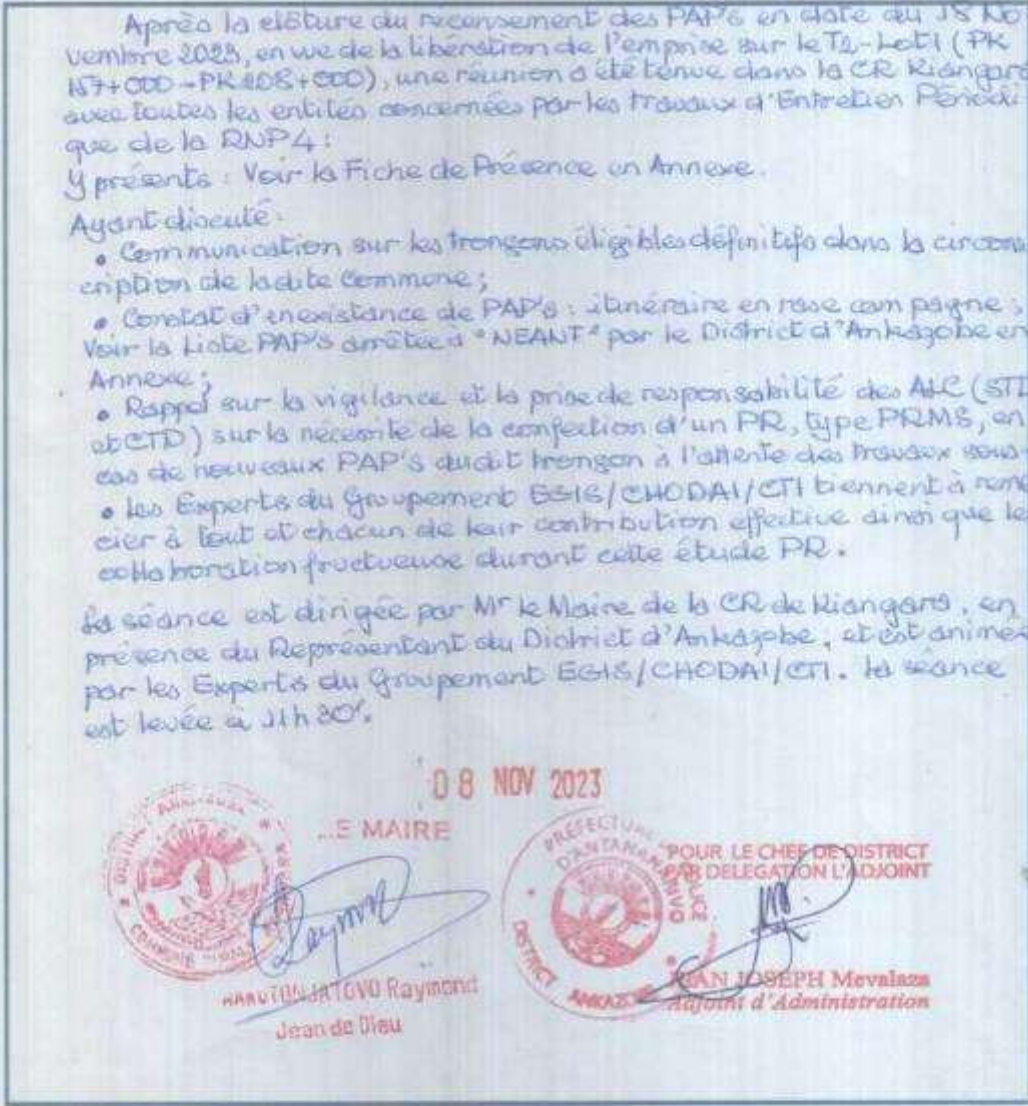 Après la clôture du recensement des PAP's en date du 18 No
vembre 2023, en vue de la libération de l'emprise sur le T2-Lot1 (PK
157+000-PK208+000), une réunion a été tenue dans la CR Kiangara
avec toutes les entités concernées par les travaux d'Entretien Périodi
que de la RNP4:
Y présents : Voir la Fiche de Présence en Annexe.
Ayant discuté:
• Communication sur les tronçons éligibles définitifs dans la circons
cription de ladite Commune;
• Constat d'inexistance de PAP's : itinéraire en rase campagne ;
Voir la Liste PAP's arrêtée à "NEANT" par le District d'Ankazobe en
Annexe;
• Rappel sur la vigilance et la prise de responsabilité des ALC (STD
et CTD) sur la nécessité de la confection d'un PR, type PRMS, en
cas de nouveaux PAP's dudit tronçon à l'attente des travaux sous-
• Les Experts du Groupement EGIS/CHODAI/CTI tiennent à remer
cier à tout et chacun de leur contribution effective ainsi que le
collaboration fructueuse durant cette étude PR.
La séance est dirigée par Mr le Maire de la CR de Kiangara, en
présence du Représentant du District d'Ankazobe, et est animée
par les Experts du Groupement EGIS/CHODAI/CTI. La séance
est levée à 11h30'.
08 NOV 2023
.E MAIRE
POUR LE CHEF DE DISTRICT
PAR DELEGATION L'ADJOINT
PREFECTURE
D'ANTANANARIVO
DISTRICT ANKAZOBE
Raymond
Jean de Dieu
JEAN JOSEPH Mevalaza
Adjoint d'Administration